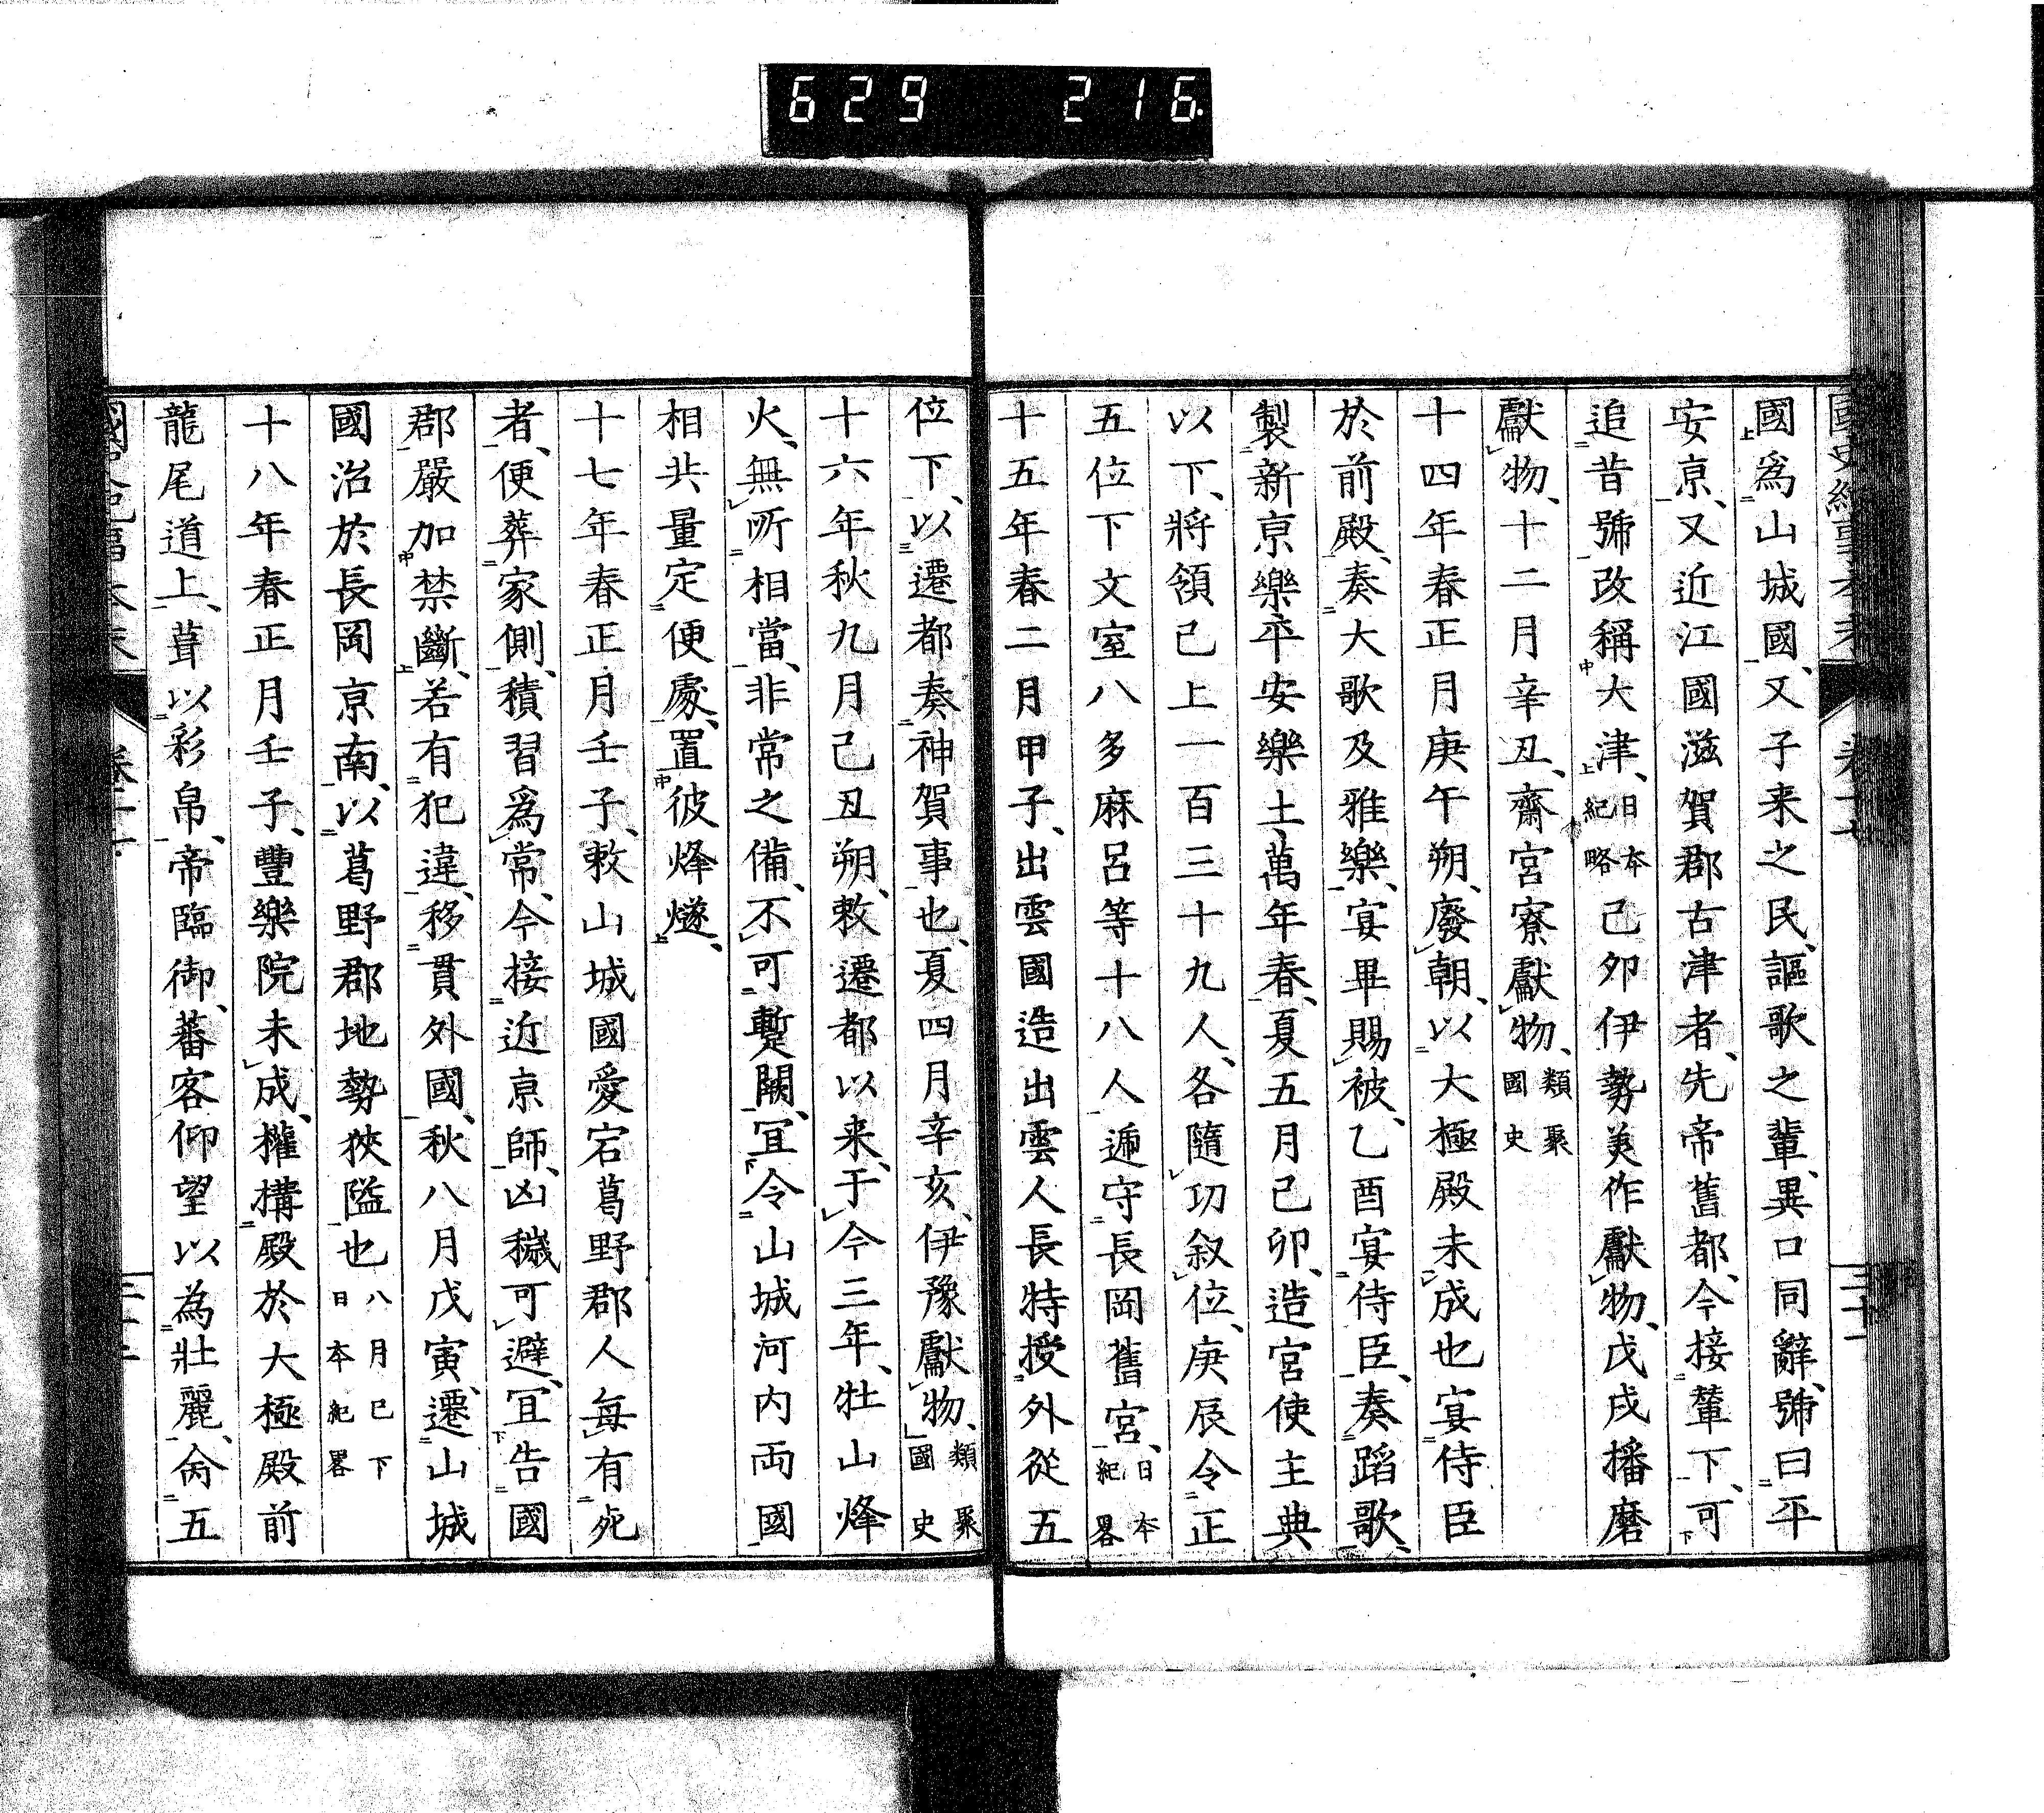 629 216
國爲山城國、又子来之民、謳歌之輩、異口同辭、號曰平
安京、又近江國滋賀郡古津者、先帝舊都、今接輦下、可
追昔號改稱大津、日本紀略己卯伊勢美作獻物、戊戌播磨
獻物、十二月辛丑、齋宮寮獻物、類聚國史
十四年春正月庚午朔、廢朝、以大極殿未成也宴侍臣
於前殿、奏大歌及雅樂、宴畢賜被、乙酉宴侍臣、奏蹈歌、
製新京樂平安樂土萬年春、夏五月己卯、造宮使主典
以下、將領已上一百三十九人、各隨功叙位、庚辰令正
五位下文室八多麻呂等十八人遁守長岡舊宮、日本紀畧
十五年春二月甲子、出雲國造出雲人長特授外從五
位下、以遷都奏神賀事也、夏四月辛亥、伊豫獻物、類聚國史
十六年秋九月己丑朔、敕遷都以来、于今三年、牡山烽
火、無所相當、非常之備、不可蹔闕、冝令山城河内両國
相共量定便處、置彼烽燧、
十七年春正月壬子、敕山城國愛宕葛野郡人每有死
者、便葬家側、積習爲常、今接近京師、凶穢可避、冝告國
郡嚴加禁斷、若有犯違、移貫外國、秋八月戊寅、遷山城
國治於長岡京南、以葛野郡地勢狹隘也八月已下日本紀畧
十八年春正月壬子、豐樂院未成、權構殿於大極殿前
龍尾道上、葺以彩帛、帝臨御、蕃客仰望以為壯麗、侖五